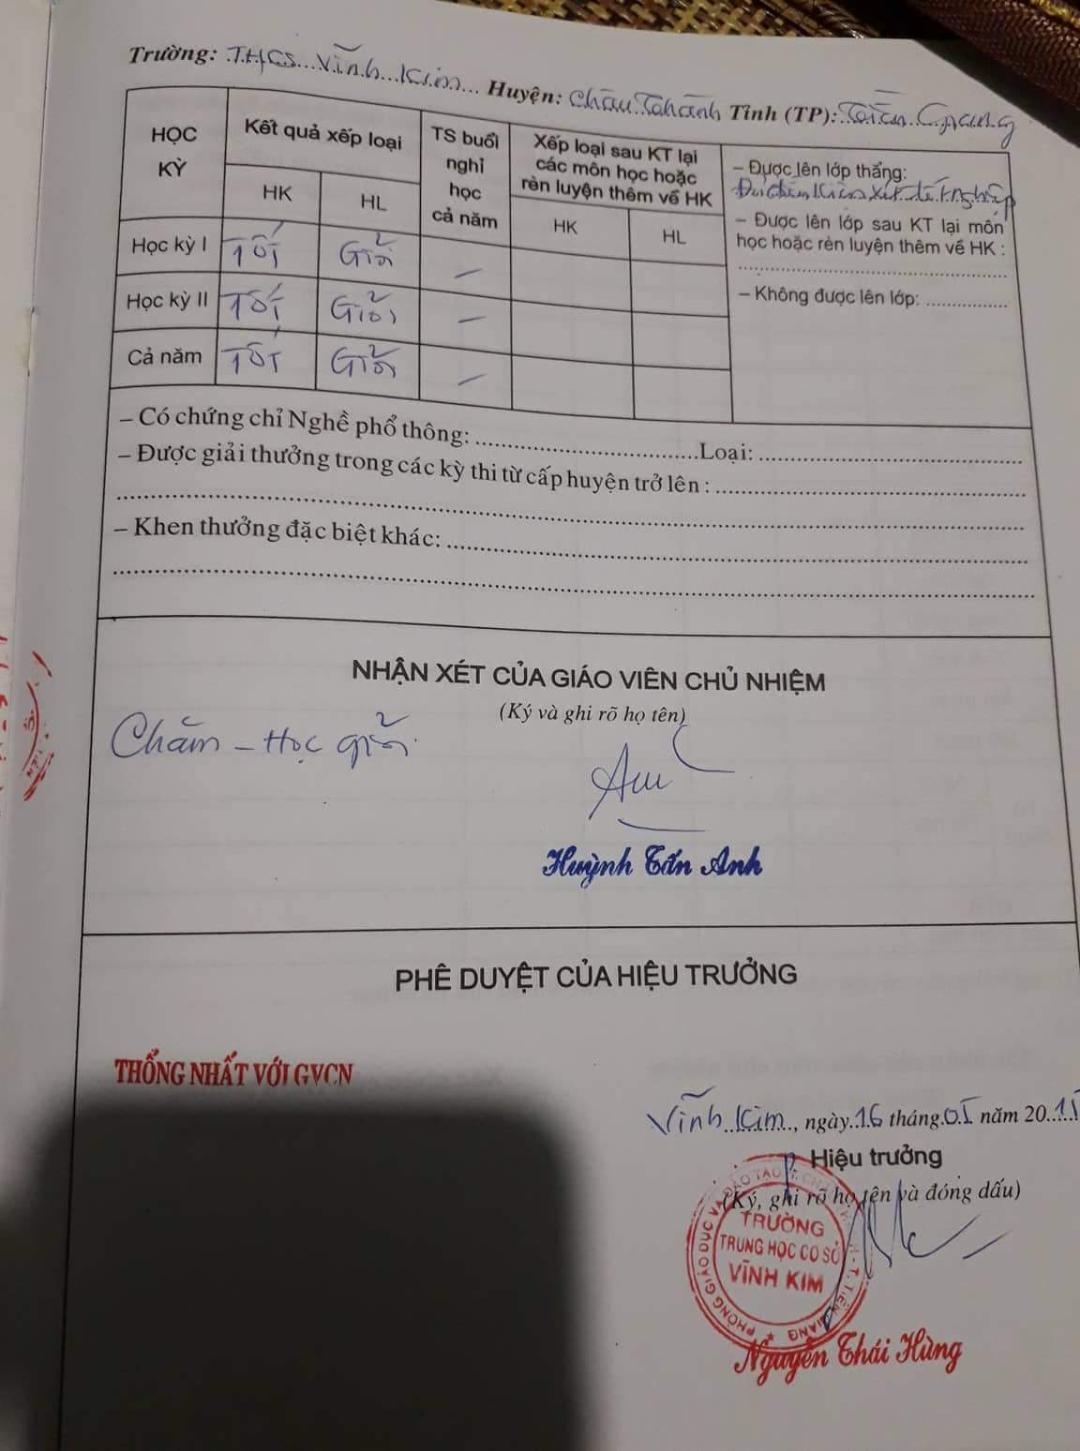 Trường: THCS Vĩnh Kim Huyện: Châu Thành Tỉnh (TP): Tiền Giang
HỌC KỲ
Kết quả xếp loại
TS buổi nghỉ học cả năm
Xếp loại sau KT lại các môn học hoặc rèn luyện thêm về HK
HK HL
HK HL
Học kỳ I Tốt Giỏi –
Học kỳ II Tốt Giỏi –
Cả năm Tốt Giỏi –
– Được lên lớp thẳng:
Đủ điều kiện xét tốt nghiệp
– Được lên lớp sau KT lại môn
học hoặc rèn luyện thêm về HK :
– Không được lên lớp:
– Có chứng chỉ Nghề phổ thông: Loại:
– Được giải thưởng trong các kỳ thi từ cấp huyện trở lên :
– Khen thưởng đặc biệt khác:
NHẬN XÉT CỦA GIÁO VIÊN CHỦ NHIỆM
(Ký và ghi rõ họ tên)
Chăm – Học giỏi
Huỳnh Tấn Anh
PHÊ DUYỆT CỦA HIỆU TRƯỞNG
THỐNG NHẤT VỚI GVCN
Vĩnh Kim, ngày 16 tháng 05 năm 20
Hiệu trưởng
(Ký, ghi rõ họ tên và đóng dấu)
TRƯỜNG
TRUNG HỌC CƠ SỞ
VĨNH KIM
PHÒNG GIÁO DỤC VÀ ĐÀO TẠO T. TIỀN GIANG
Nguyễn Thái Hùng